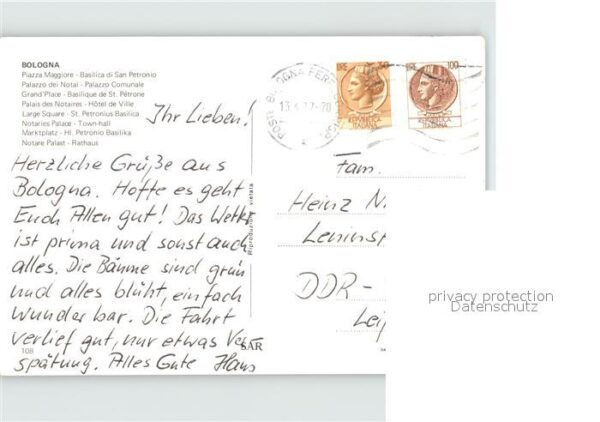 BOLOGNA
Piazza Maggiore - Basilica di San Petronio
Palazzo dei Notai - Palazzo Comunale
Grand'Place - Basilique de St. Pétrone
Palais des Notaires - Hôtel de Ville
Large Square - St. Petronius Basilica
Notaries Palace - Town-hall
Marktplatz - Hl. Petronio Basilika
Notare Palast - Rathaus
Ihr Lieben!
Herzliche Grüße aus
Bologna. Hoffe es geht
Euch Allen gut! Das Wetter
ist prima und sonst auch
alles. Die Bäume sind grün
und alles blüht, einfach
wunderbar. Die Fahrt
verlief gut, nur etwas Ver
spätung. Alles Gute Hans
108
SAR
Riproduzione vietata
POSTE BOLOGNA FERROVIA
LIRE 50
REPVBBLICA
ITALIANA
LIRE 100
REPVBBLICA
ITALIANA
Fam.
Heinz
Leninst
DDR -
Leip
privacy protection
Datenschutz